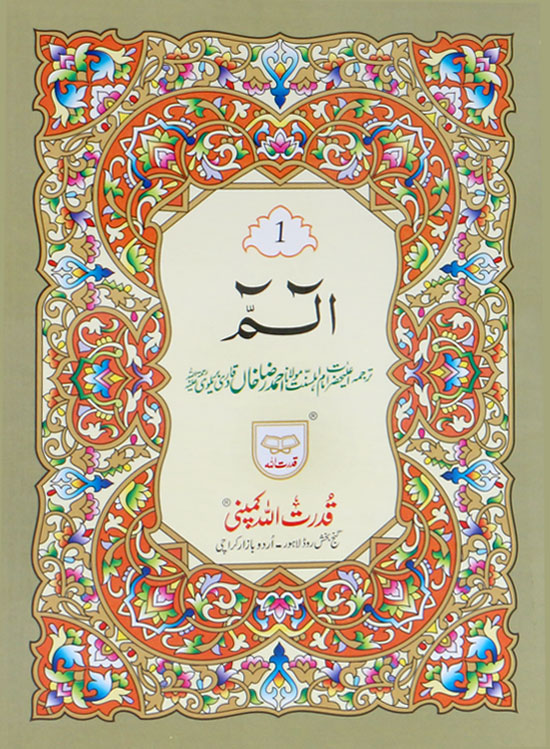 1
الٓمّٓ
ترجمہ اعلیحضرت امام اہلسنت مولانا احمد رضا خاں قادری بریلوی رحمۃ اللہ علیہ
®
قدرت اللہ
قُدرت اللہ کمپنی ®
گنج بخش روڈ لاہور - اُردو بازار کراچی